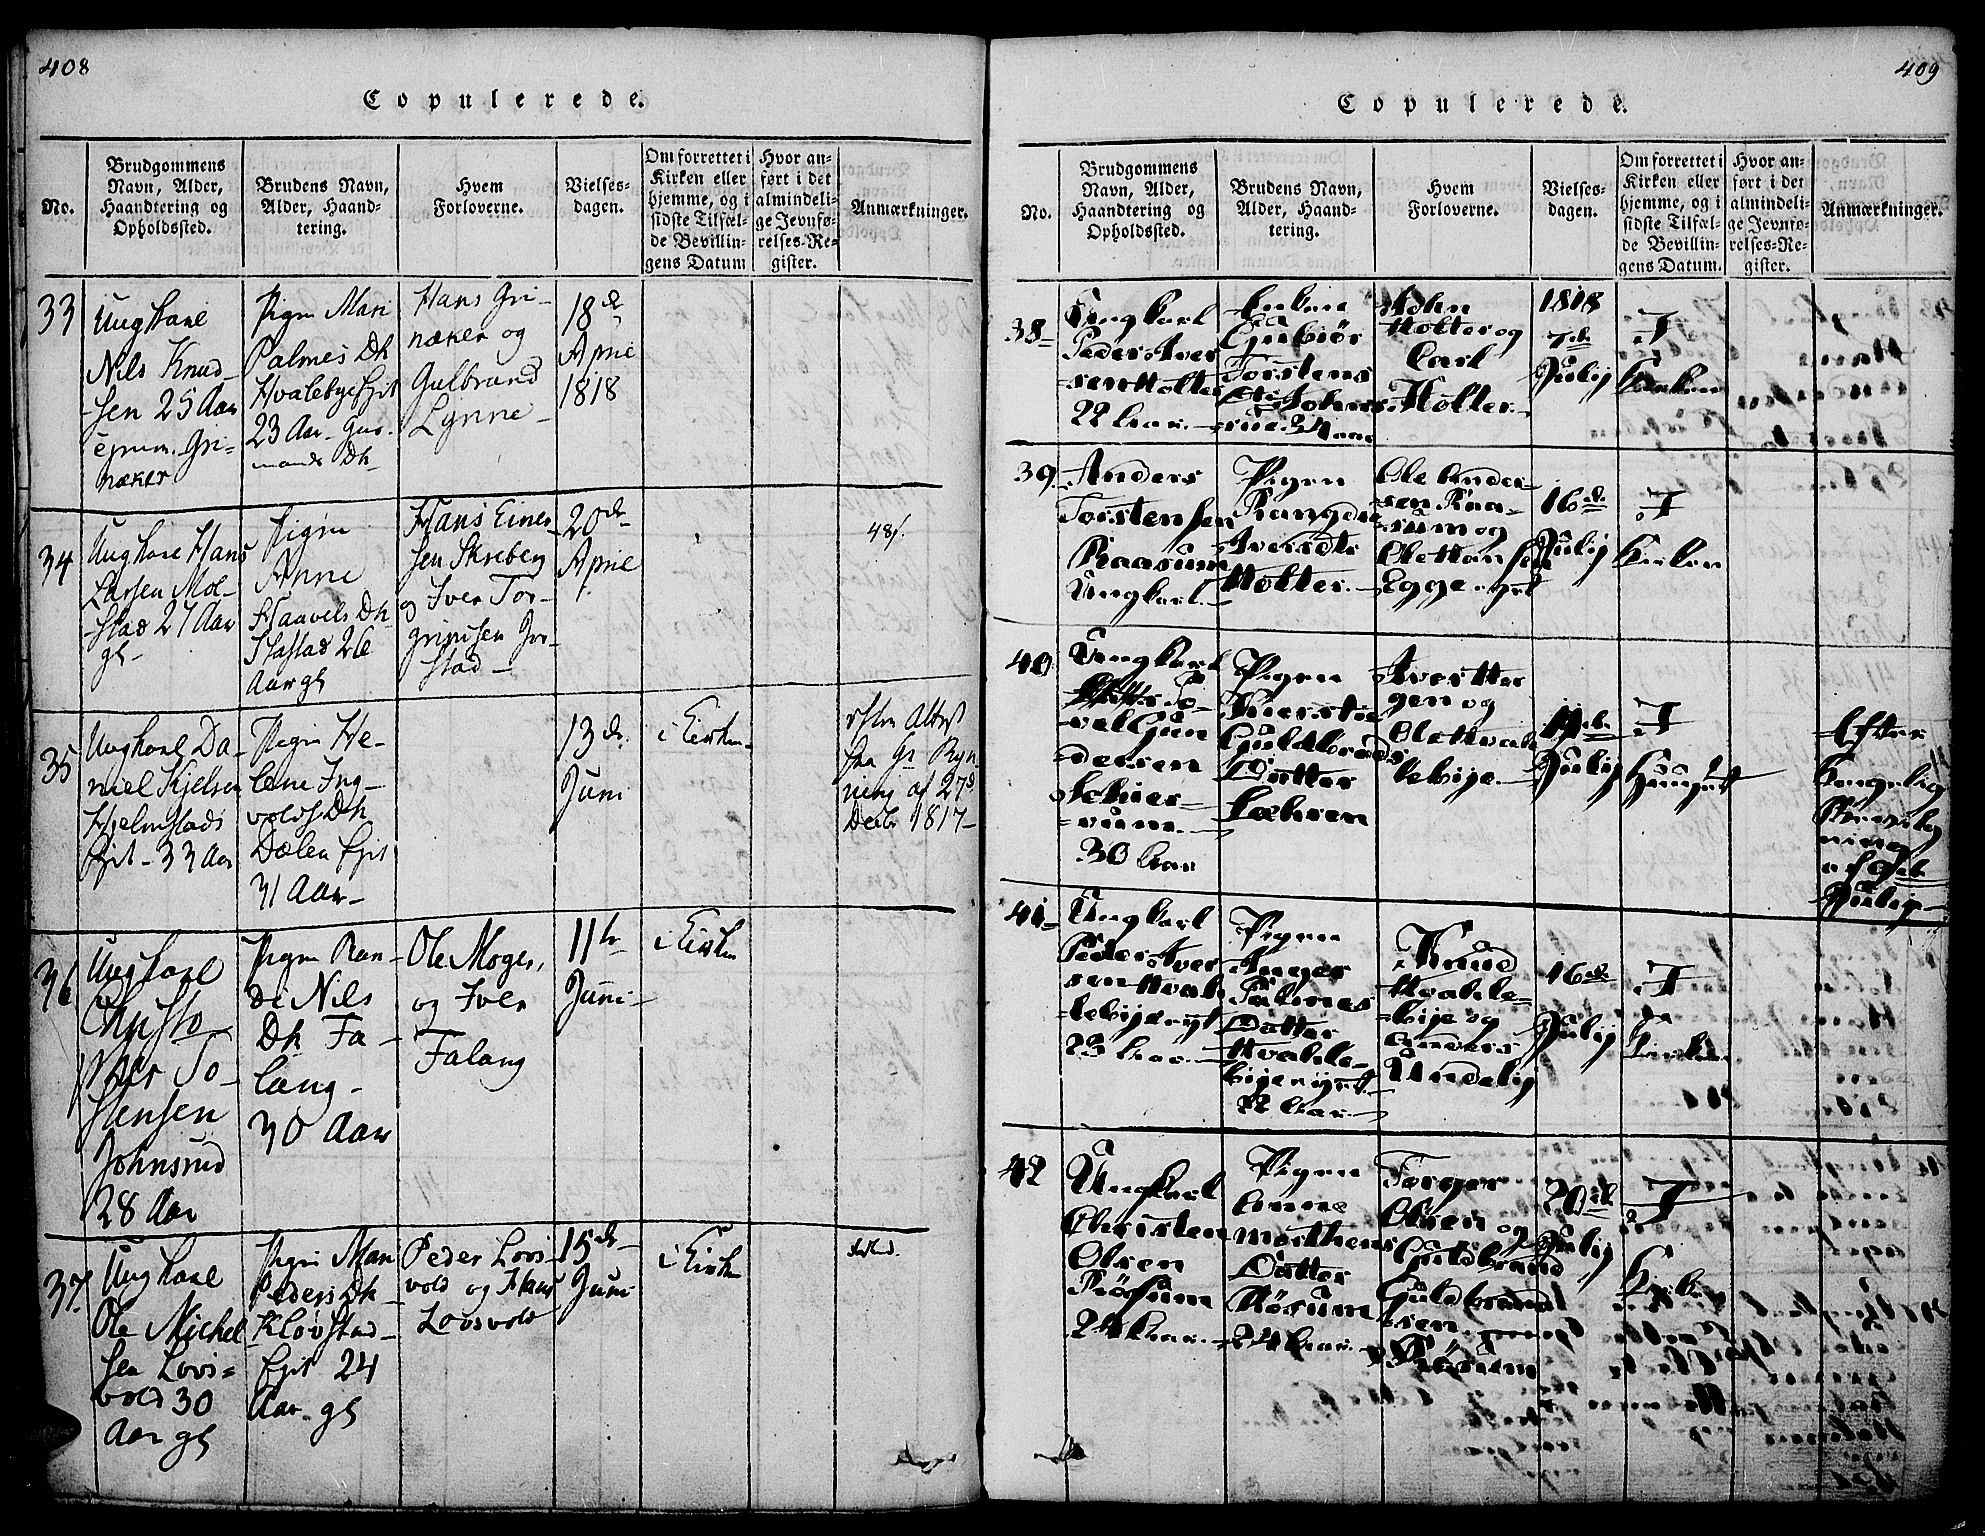 408
Copulerede.
No.
Brudgommens
Navn, Alder,
Haandtering og
Opholdssted.
Brudens Navn,
Alder, Haand-
tering.
Hvem
Forloverne.
Vielses-
dagen.
Om forrettet i
Kirken eller
hjemme, og i
sidste Tilfæl-
de Bevillin-
gens Datum
Hvor an-
ført i det
almindeli-
ge Jevnfø-
relses-Re-
gister.
Anmærkninger.
33
Ungkarl
Nils Knud-
sen 25 Aar
Gri-
næker
Pigen Mari
Palmes Dh
Hvalebye
23 Aar
Dh
Hans Gri-
næker og
Gulbrand
Lynne
18de
April
1818
34
Ungkarl Hans
Larsen Mol-
stad 27 Aar
gl-
Pigen
Anne
Haavels Dh
26
Aar gl
Hans Einer
sen Skreberg
og Iver Tor-
grimsen Jor-
stad
20de
April
48/.
35
Ungkarl Da-
niel Kjelsen
Hjelmstads
Ejet - 33 Aar
Pigen He-
lene Ing-
volds Dh
Dælen Ejet
31 Aar
13de
Juni
i Kirken
efter Attest
fra Gr Ryn
ning af 27d
Decbr 1817
36
Ungkarl
Christo
pher To
stensen
Johnsrud
28 Aar
Pigen Ran-
di Nils
Dh Fa-
lang
30 Aar
Ole Moger,
og Iver
Falang
11te
Juni
i Kirken
37.
Ungkarl
Ole Michel
sen Lovs-
vold 30
Aar gl
Pigen Mari
Peders Dh
Kløvstad-
Ejet 24
Aar gl
Peder Lovs
vold og Hans
Lovsvold
15de
Juni
i Kirken
409
Copulerede.
No.
Brudgommens
Navn, Alder,
Haandtering og
Opholdssted.
Brudens Navn,
Alder, Haand-
tering.
Hvem
Forloverne.
Vielses-
dagen.
Om forrettet i
Kirken eller
hjemme, og i
sidste Tilfæl-
de Bevillin-
gens Datum.
Hvor an-
ført i det
almindeli-
ge Jevnfø-
relses-Re-
gister.
Anmærkninger.
38
Ungkarl
Peder Iver
sen Holter
22 Aar
Enken
Gubiør
Torstens
Johns
rud 34 Aar
John
Holter og
Carl
Holter
1818
7de
Julij
I
Kirken
39.
Anders
Torstensen
Raasum
Ungkarl
Pigen
Rangdie
Iversdtr
Holter
Ole Ander-
sen Raa-
sum og
Ole Hansen
Egge
16de
Julij
I
Kirken
40
Ungkarl
Gun
dersen
30 Aar
Pigen
Kiersti
Guldbrands
Datter
Iver
gen og
Ole Hvale
bije
Julij
I
Efter
Kongelig
Julij
41
Ungkarl
Peder Iver
sen Hval
lebije
23 Aar
Pigen
Palmes
Datter
Hvalle-
bije
22 Aar
Knud
Hvalle-
bije og
Anders
Undelij
16de
Julij
I
Kirken
42
Ungkarl
Christen
Olsen
Røsum
24 Aar
Pigen
Anne
Morthens
Datter
Røsum
24 Aar
Torger
Olsen og
Guldbrand
Guldbrand
sen
Røsum
20de
Julij
I
Kirken